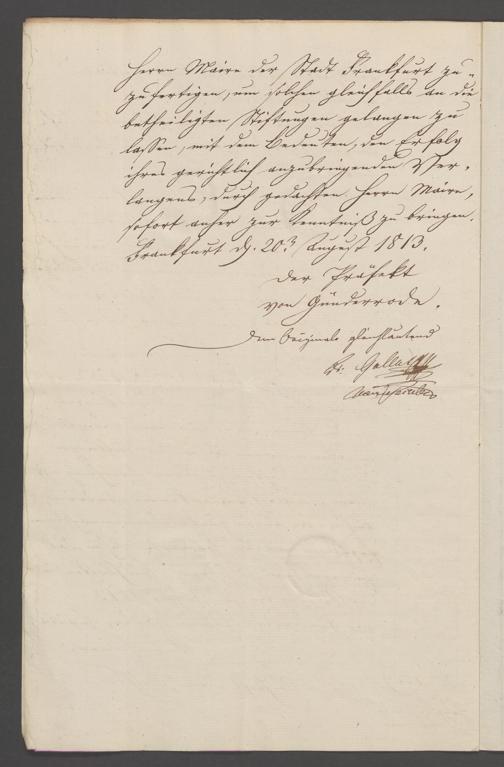 Herrn Maire der Stadt Frankfurt zu-
zufertigen, um solchen gleichfalls an die
betheiligten Stiftungen gelangen zu
lassen, mit dem Bedeuten, den Erfolg
ihres gerichtlich anzubringenden Ver-
langens, durch gedachten Herrn Maire,
sofort anher zur Kenntniß zu bringen.
Frankfurt d. 20. August 1813.
Der Präfekt
von Günderrode.
Dem Originale gleichlautend